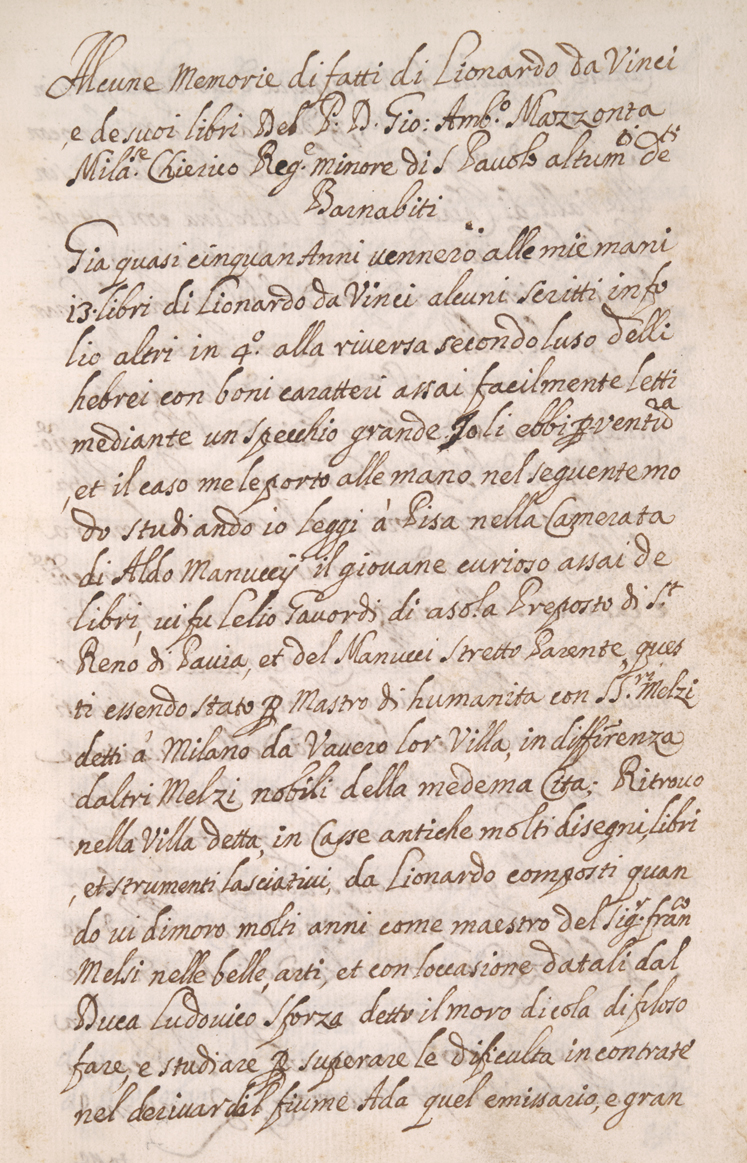 Alcune Memorie di fatti di Lionardo da Vinci
e de suoi libri Del P: D. Gio: Amb.º Mazzonta
Mila.se Chierico Reg.e minore di S Pavolo altum.i de.tti
Barnabiti
Gia quasi cinquan Anni vennero alle mie mani
13. libri di Lionardo da Vinci alcuni scritti in fo
lio altri in 4.º alla riversa secondo luso delli
hebrei con boni caratteri assai facilmente letti
mediante un specchio grande. Jo li ebbi ꝑ ventura
, et il caso me le porto alle mano nel seguente mo
do studiando io leggi à Pisa nella Camerata
di Aldo Manuccij il giovane curioso assai de
libri, vi fu Lelio Gavordi di asola Preposto di S.t
Reno di Pavia, et del Manucci stretto Parente, ques
ti essendo stato ꝑ Mastro di humanita con SS.ri Melzi
detti á Milano da Vavero lor Villa, in differenza
daltri Melzi nobili della medema Citta; Ritrovo
nella Villa detta, in Casse antiche molti disegni, libri
, et strumenti lasciativi, da Lionardo composti quan
do vi dimoro molti anni come maestro del Sig.r fran.co
Melsi nelle belle arti, et con loccasione datali dal
Duca Ludovico Sforza detto il moro di cola di filoso
fare, e studiare ꝑ superare le dificulta incontrate
nel derivar dal fiume Ada quel emissario, e gran